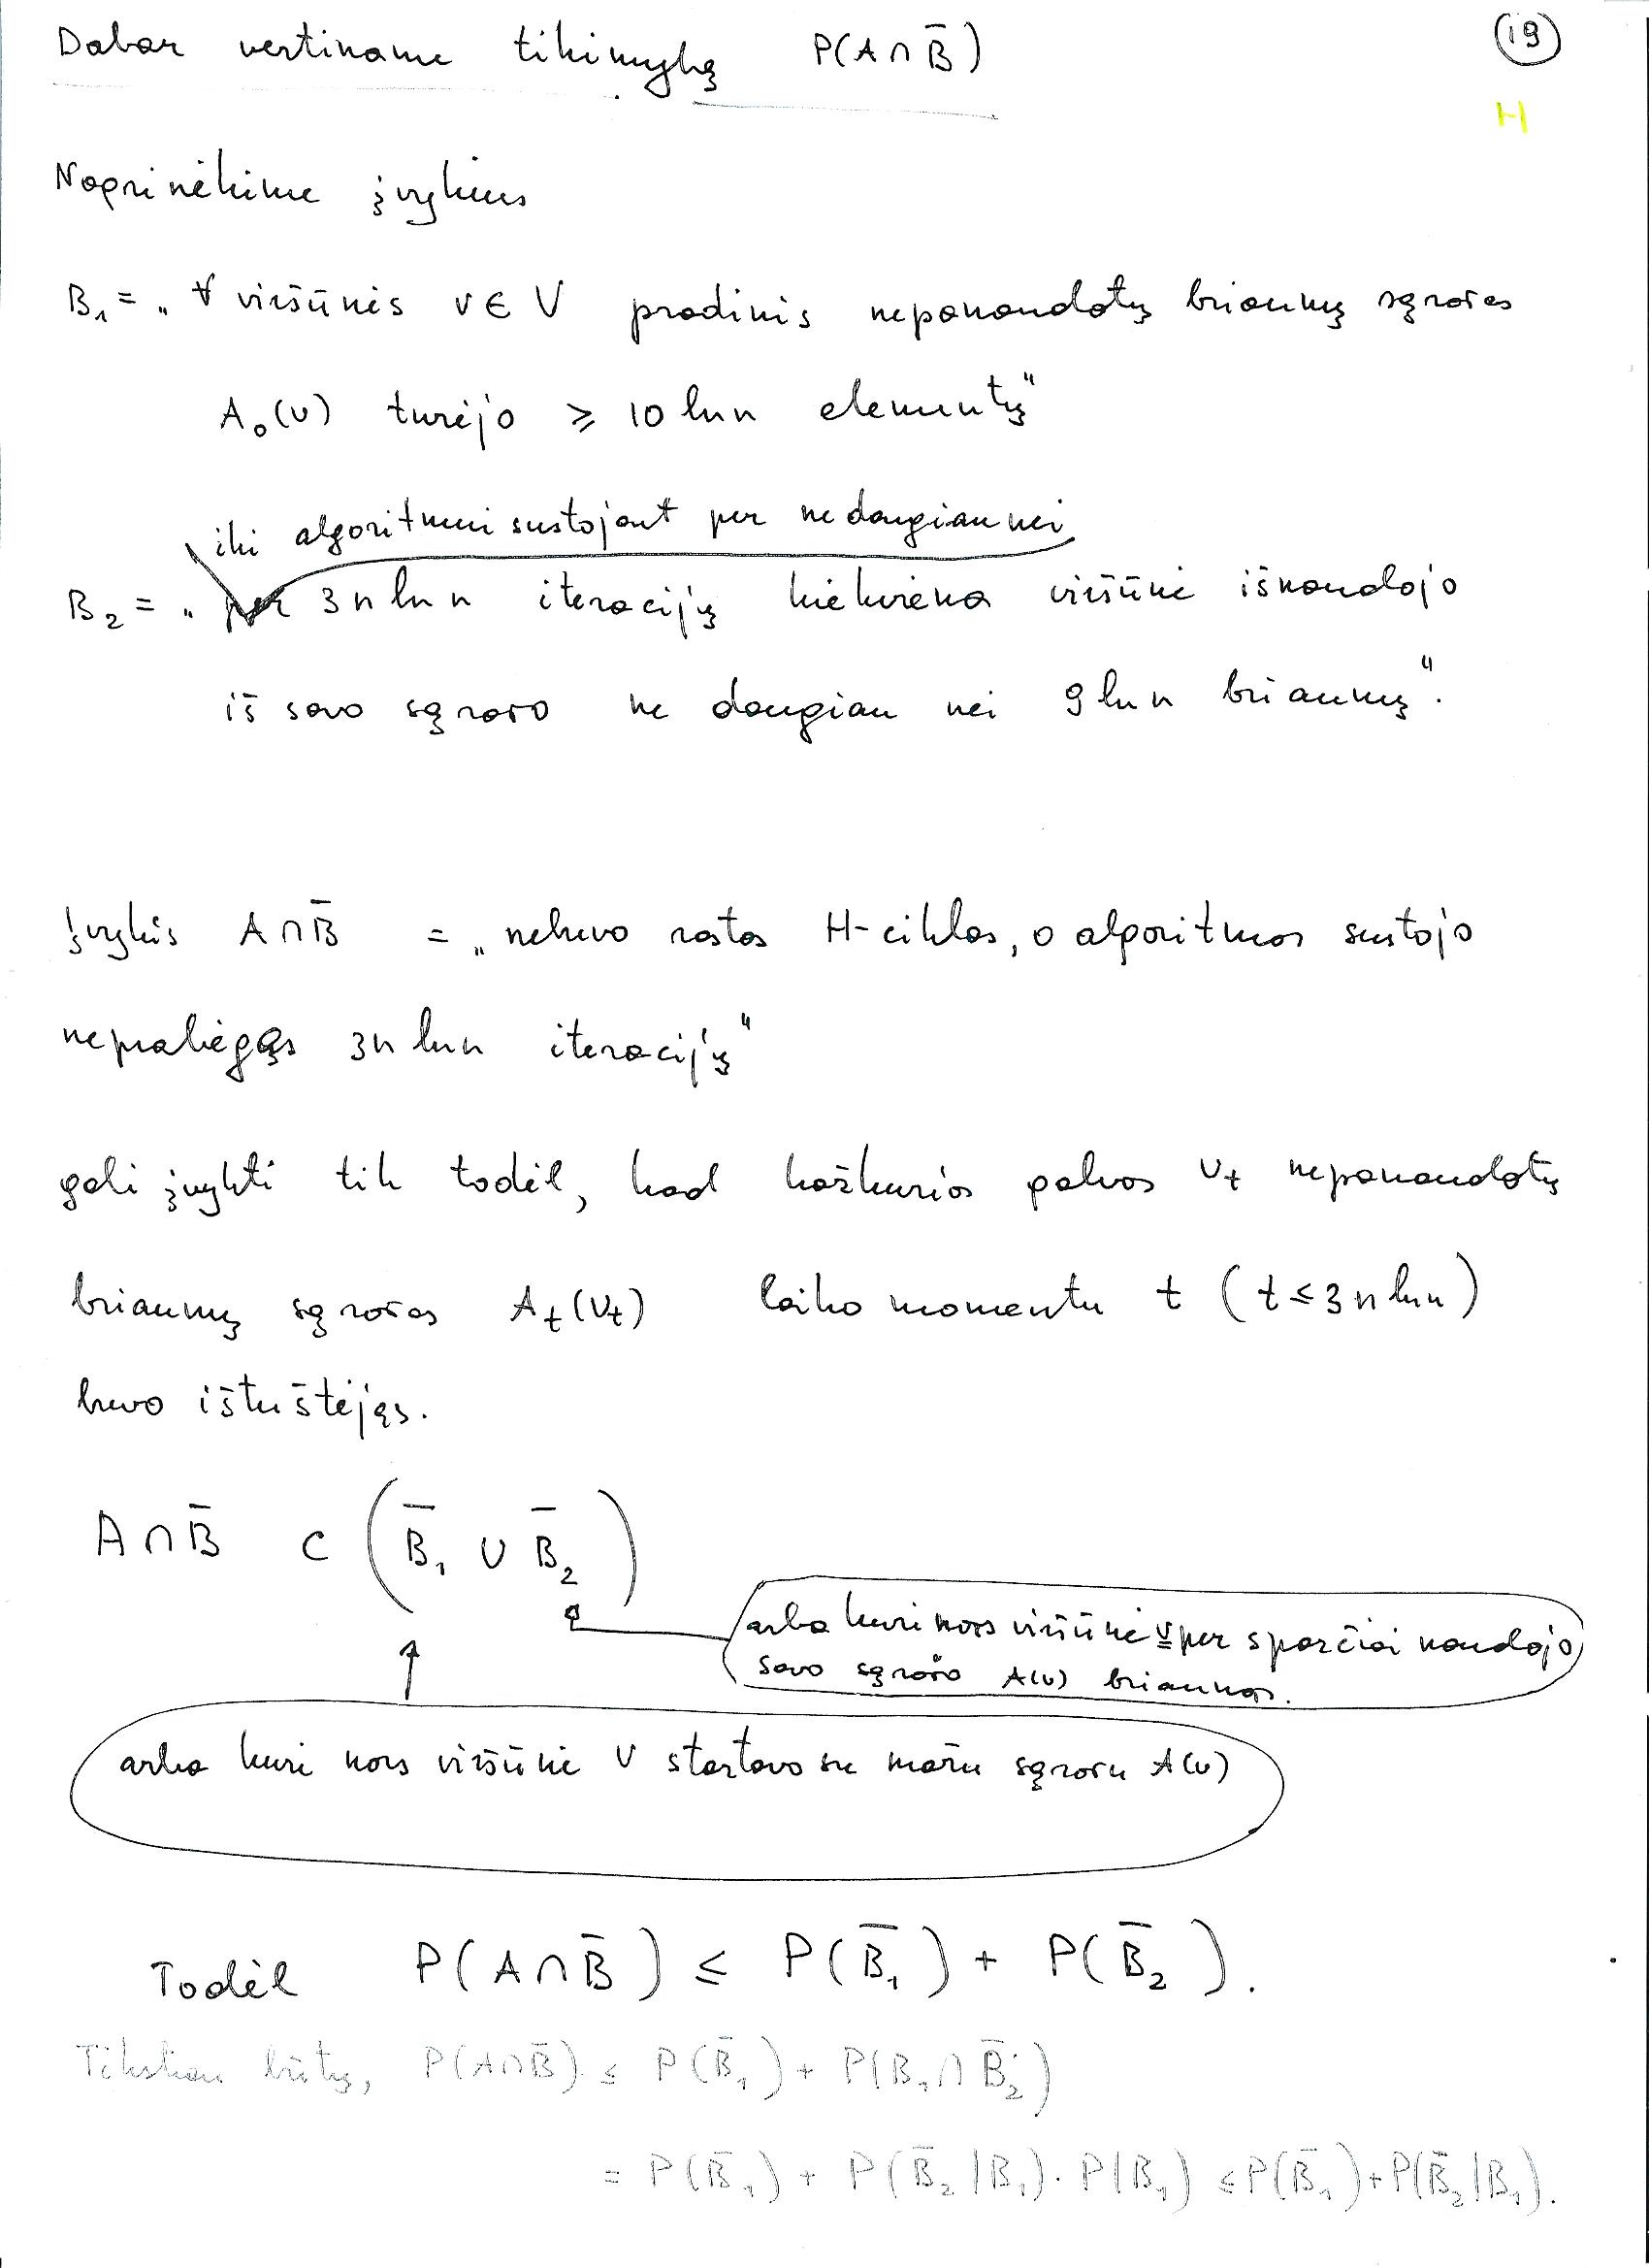 Dabar vertiname tikimybę P(A ∩ B̄)
19
H
Nagrinėkime įvykius
B₁ = „ ∀ viršūnės v ∈ V pradinis nepanaudotų briaunų sąrašas
A₀(v) turėjo ≥ 10 ln n elementų“
iki algoritmui sustojant per ne daugiau nei
B₂ = „ per 3n ln n iteracijų kiekviena viršūnė išnaudojo
iš savo sąrašo ne daugiau nei 9 ln n briaunų“.
Įvykis A ∩ B̄ = „nebuvo rastas H-ciklas, o algoritmas sustojo
neprabėgęs 3n ln n iteracijų“
gali įvykti tik todėl, kad kažkurios galvos v_t nepanaudotų
briaunų sąrašas A_t(v_t) laiko momentu t (t ≤ 3n ln n)
buvo ištuštėjęs.
A ∩ B̄ ⊂ (B̄₁ ∪ B̄₂)
arba kuri nors viršūnė v per sparčiai naudojo
savo sąrašo A(v) briaunas.
arba kuri nors viršūnė v startavo su mažu sąrašu A(v)
Todėl P(A ∩ B̄) ≤ P(B̄₁) + P(B̄₂).
Tiksliau būtų, P(A ∩ B̄) ≤ P(B̄₁) + P(B₁ ∩ B̄₂)
= P(B̄₁) + P(B̄₂ | B₁) · P(B₁) ≤ P(B̄₁) + P(B̄₂ | B₁).